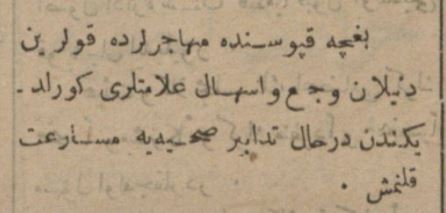 بغچه قپوسنده مهاجرلرده قولرين
دنيلان وجع واسهال علامتلری کورلد ـ
يکندن درحال تدابير صحيه‌يه مسارعت
قلنمش ٠